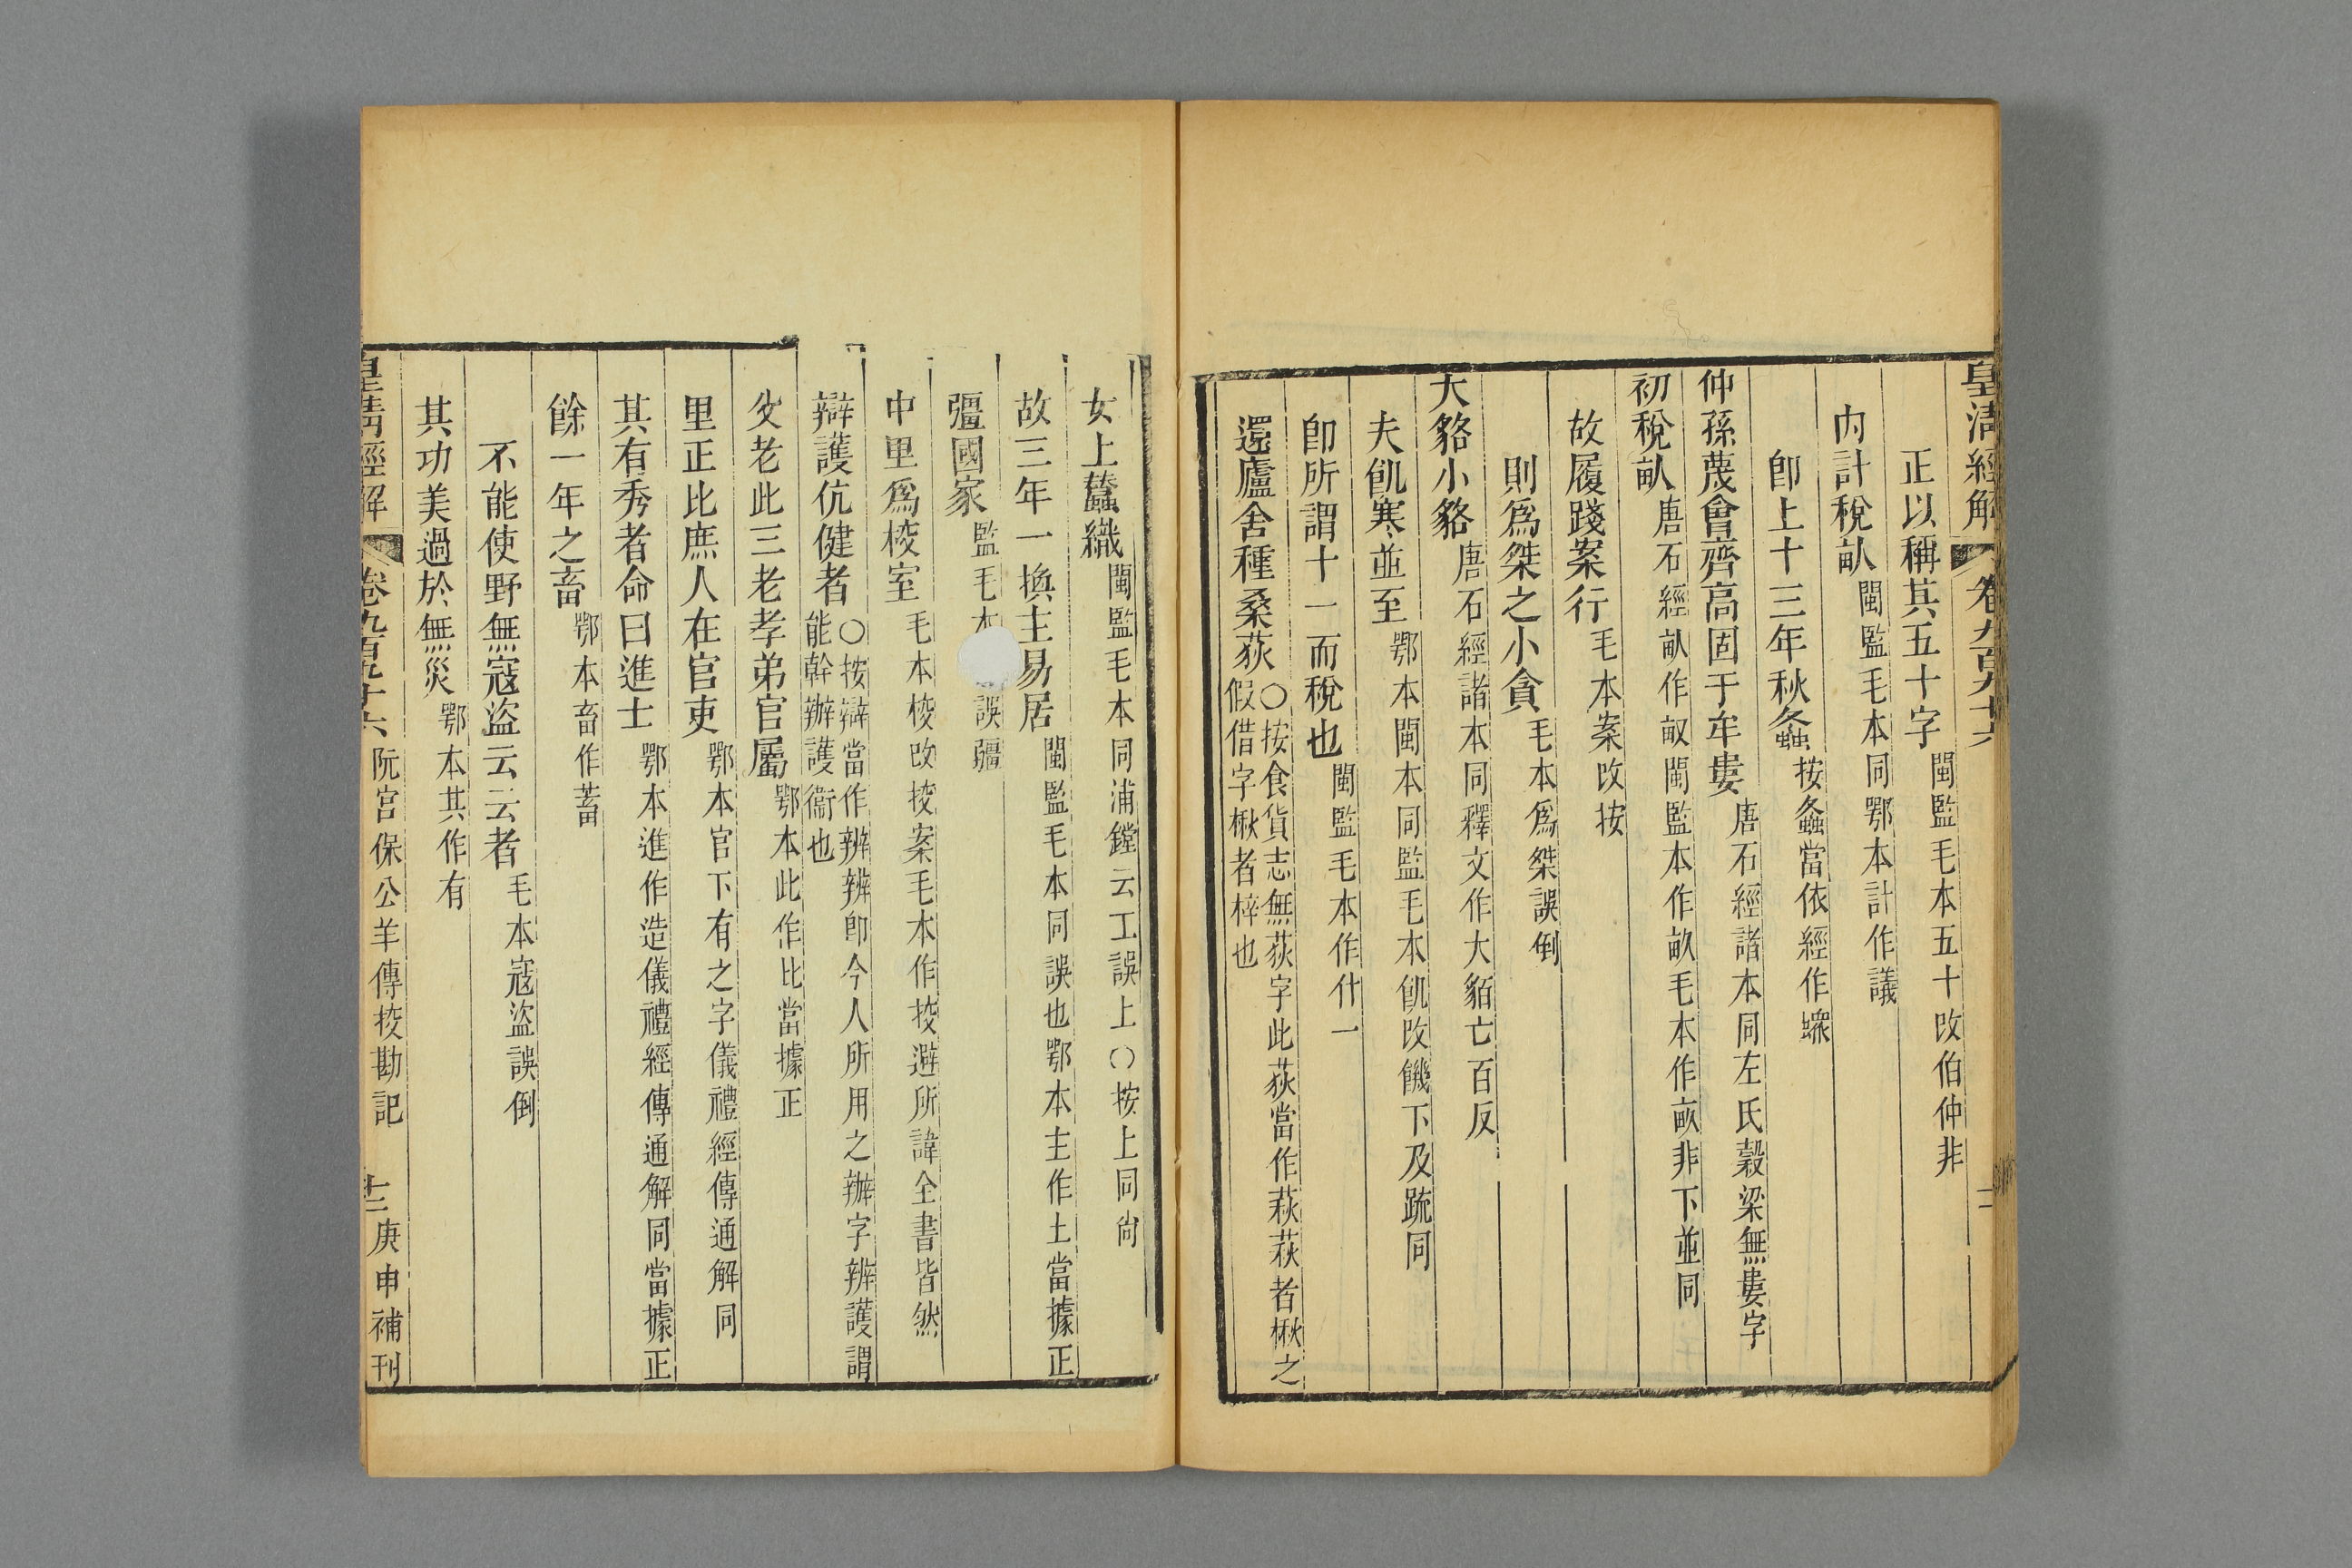 皇清經解 卷九百九十六
正以稱其五十字閩監毛本五十改伯仲非
内計稅畝閩監毛本同鄂本計作議
卽上十三年秋螽按螽當依經作𧑄
仲孫蔑會齊高固于牟婁唐石經諸本同左氏穀梁無婁字
初稅畝唐石經畝作畞閩監本作畝毛本作畝非下並同
故履踐案行毛本案改按
則爲桀之小貪毛本爲桀誤倒
大貉小貉唐石經諸本同釋文作大貊亡百反
夫飢寒並至鄂本閩本同監毛本飢改饑下及疏同
卽所謂十一而稅也閩監毛本作什一
還廬舍種桑荻○按食貨志無荻字此荻當作萩萩者楸之
假借字楸者梓也
女上蠶織閩監毛本同浦鏜云工誤上○按上同尙
故三年一換主易居閩監毛本同誤也鄂本主作土當據正
彊國家監毛本誤疆
中里爲校室毛本校改挍案毛本作挍避所諱全書皆然
辯護伉健者○按辯當作辨辨卽今人所用之辦字辨護謂
能幹辦護衞也
父老此三老孝弟官屬鄂本此作比當據正
里正比庶人在官吏鄂本官下有之字儀禮經傳通解同
其有秀者命曰進士鄂本進作造儀禮經傳通解同當據正
餘一年之畜鄂本畜作蓄
不能使野無寇盜云云者毛本寇盜誤倒
其功美過於無災鄂本其作有
皇清經解 卷九百九十六 阮宮保公羊傳挍勘記 十二 庚申補刊